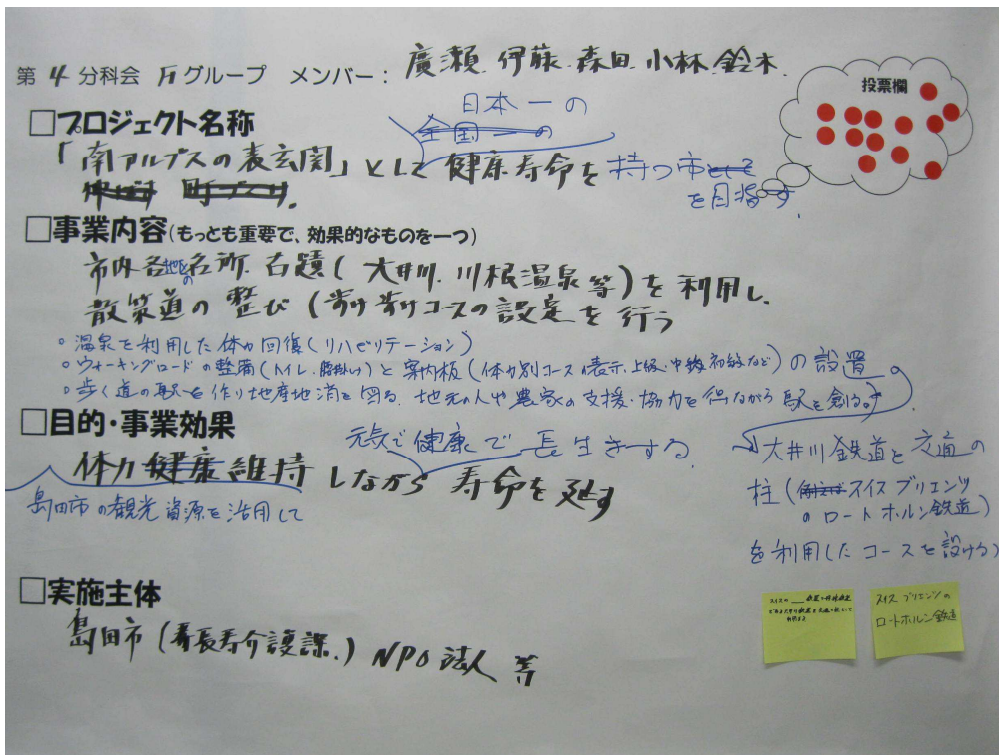 第 4 分科会 Fグループ メンバー： 廣瀬. 伊藤. 森田. 小林. 鈴木.
投票欄
□プロジェクト名称
日本一の
全国一の
「南アルプスの表玄関」として健康寿命を持つ市として
を目指す.
□事業内容(もっとも重要で、効果的なものを一つ)
市内各地区の名所. 古蹟（大井川. 川根温泉等）を利用し.
散策道の整び（歩け歩けコースの設定を行う
○温泉を利用した体力回復(リハビリテーション)
○ウォーキングロードの整備(トイレ. 腰掛け)と案内板(体力別コースの表示. 上級・中級 初級など)の設置
○歩く道の駅を作り地産地消を図る. 地元の人や農家の支援・協力を得ながら駅を創る。
□目的・事業効果
元気で健康で長生きする
体力 健康 維持しながら寿命を延す
島田市の観光資源を活用して
大井川鉄道と交通の
柱(例えば スイス ブリエンツ
のロートホルン鉄道)
を利用したコースを設ける)
□実施主体
島田市（長寿介護課.）NPO法人 等
スイス ブリエンツの
ロートホルン鉄道